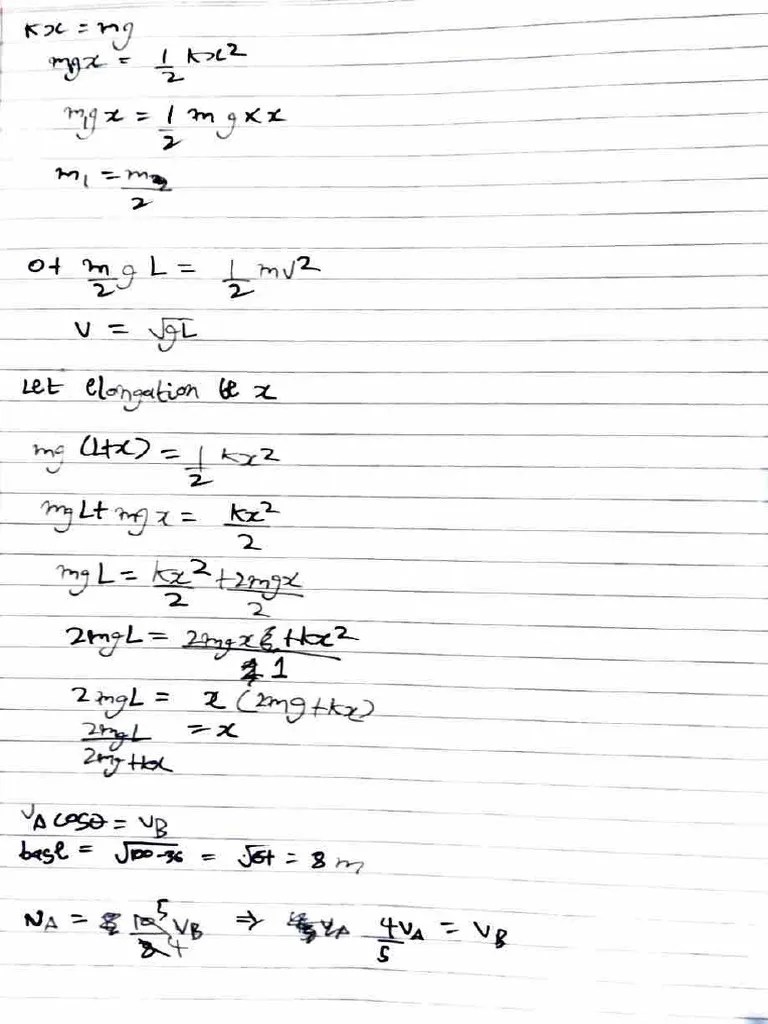 kx = mg
mgx = 1/2 kx²
m₁gx = 1/2 mg×x
m₁ = m/2
0+ m/2 gL = 1/2 mv²
v = √gL
Let elongation be x
mg (L+x) = 1/2 kx²
mgL + mgx = kx²/2
mgL = kx²/2 + 2mgx/2
2mgL = 2mgx + kx²/1
2mgL = x (2mg+kx)
2mgL/2mg+kx = x
VA cosθ = VB
base = √100-36 = √64 = 8 m
VA = 5/4 VB ⇒ 4VA/5 = VB